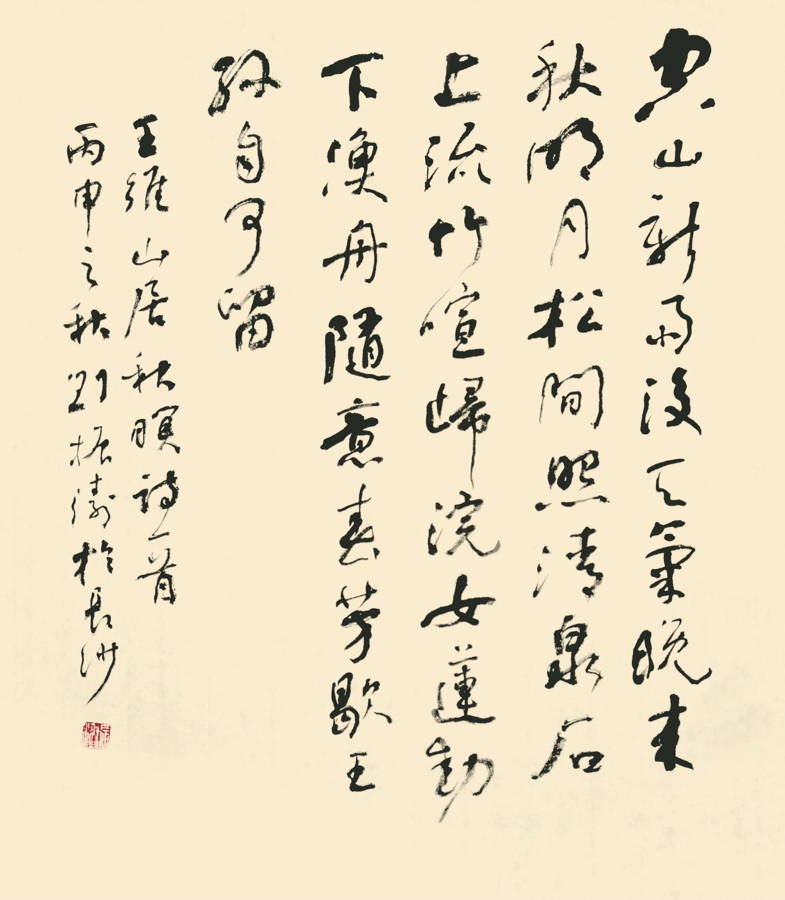 空山新雨後天氣晚來
秋明月松間照清泉石
上流竹喧歸浣女蓮動
下漁舟隨意春芳歇王
孫自可留
王維山居秋暝詩一首
丙申之秋劉振濤於長沙